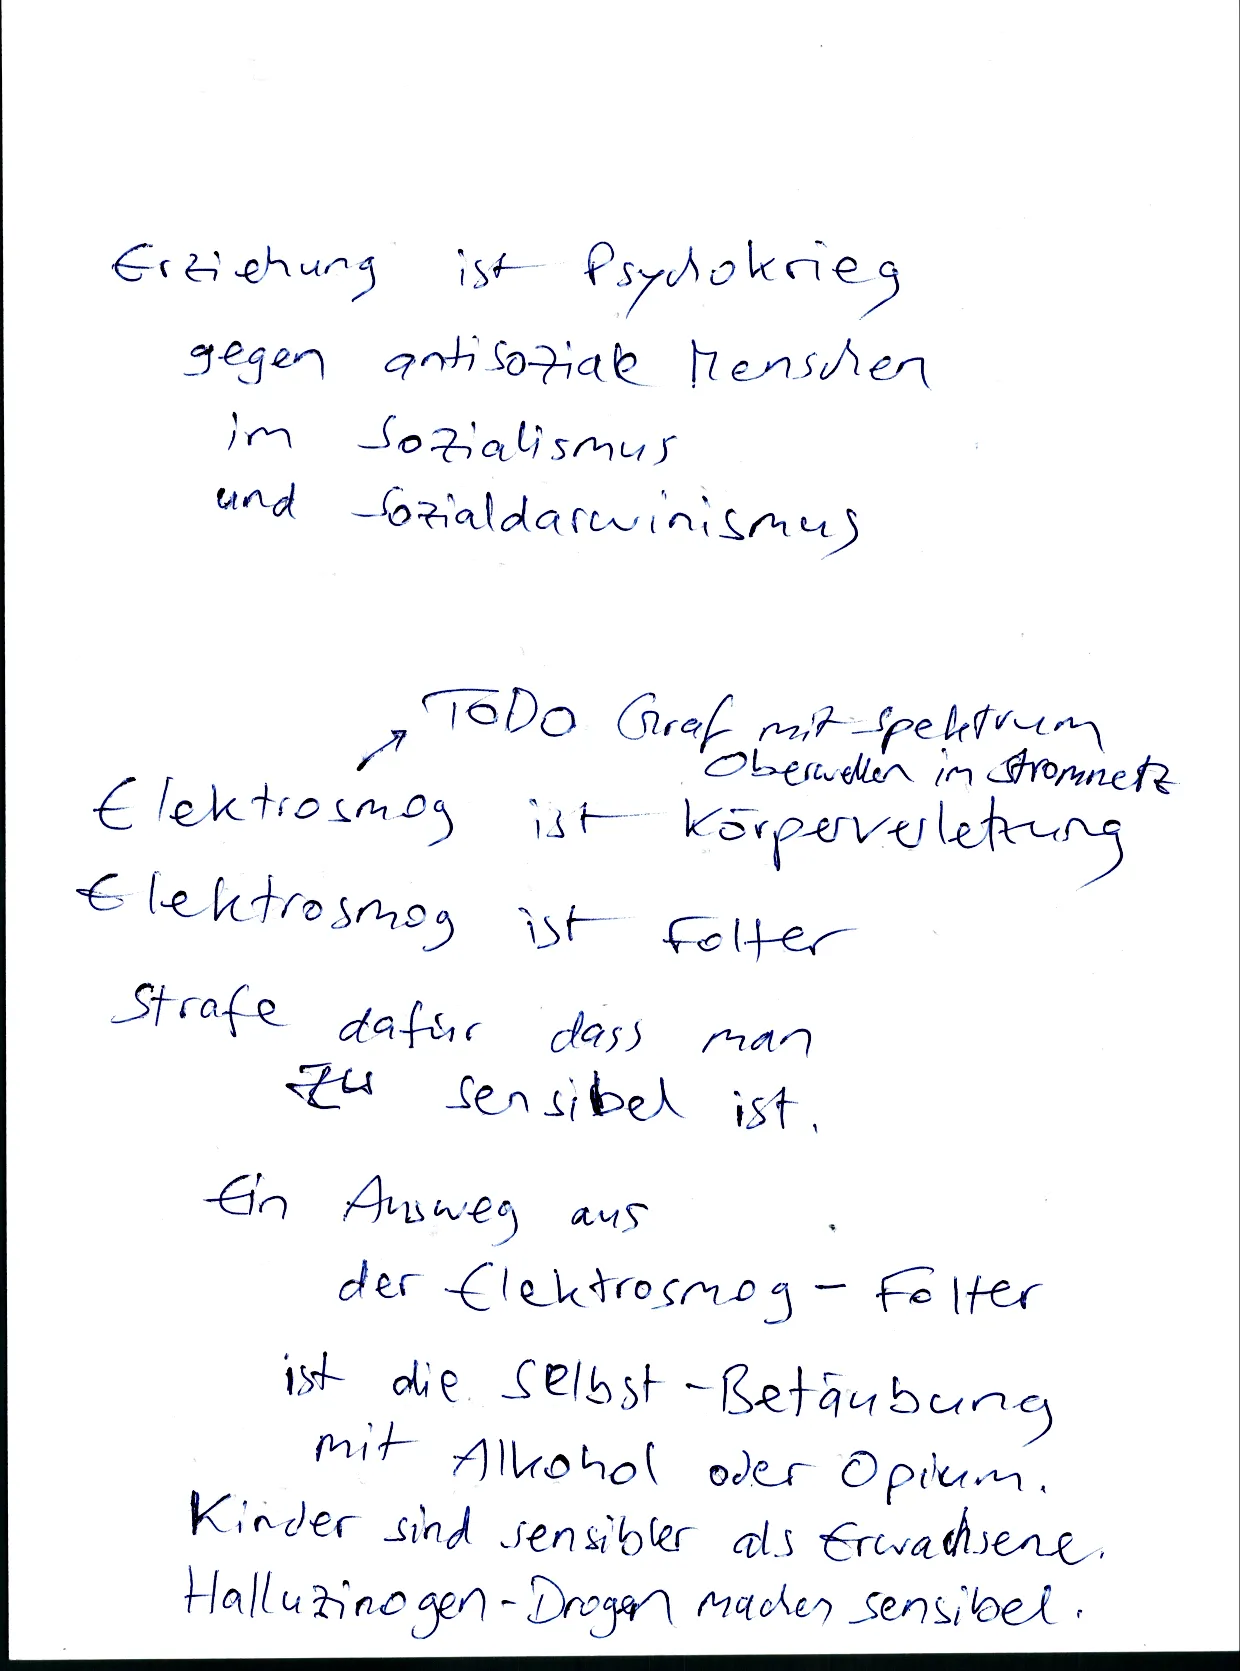 Erziehung ist Psychokrieg
gegen antisoziale Menschen
im Sozialismus
und Sozialdarwinismus
TODO Graf mit Spektrum
Oberwellen im Stromnetz
Elektrosmog ist Körperverletzung
Elektrosmog ist Folter
Strafe dafür dass man
zu sensibel ist.
Ein Ausweg aus
der Elektrosmog-Folter
ist die Selbst-Betäubung
mit Alkohol oder Opium.
Kinder sind sensibler als Erwachsene.
Halluzinogen-Drogen machen sensibel.